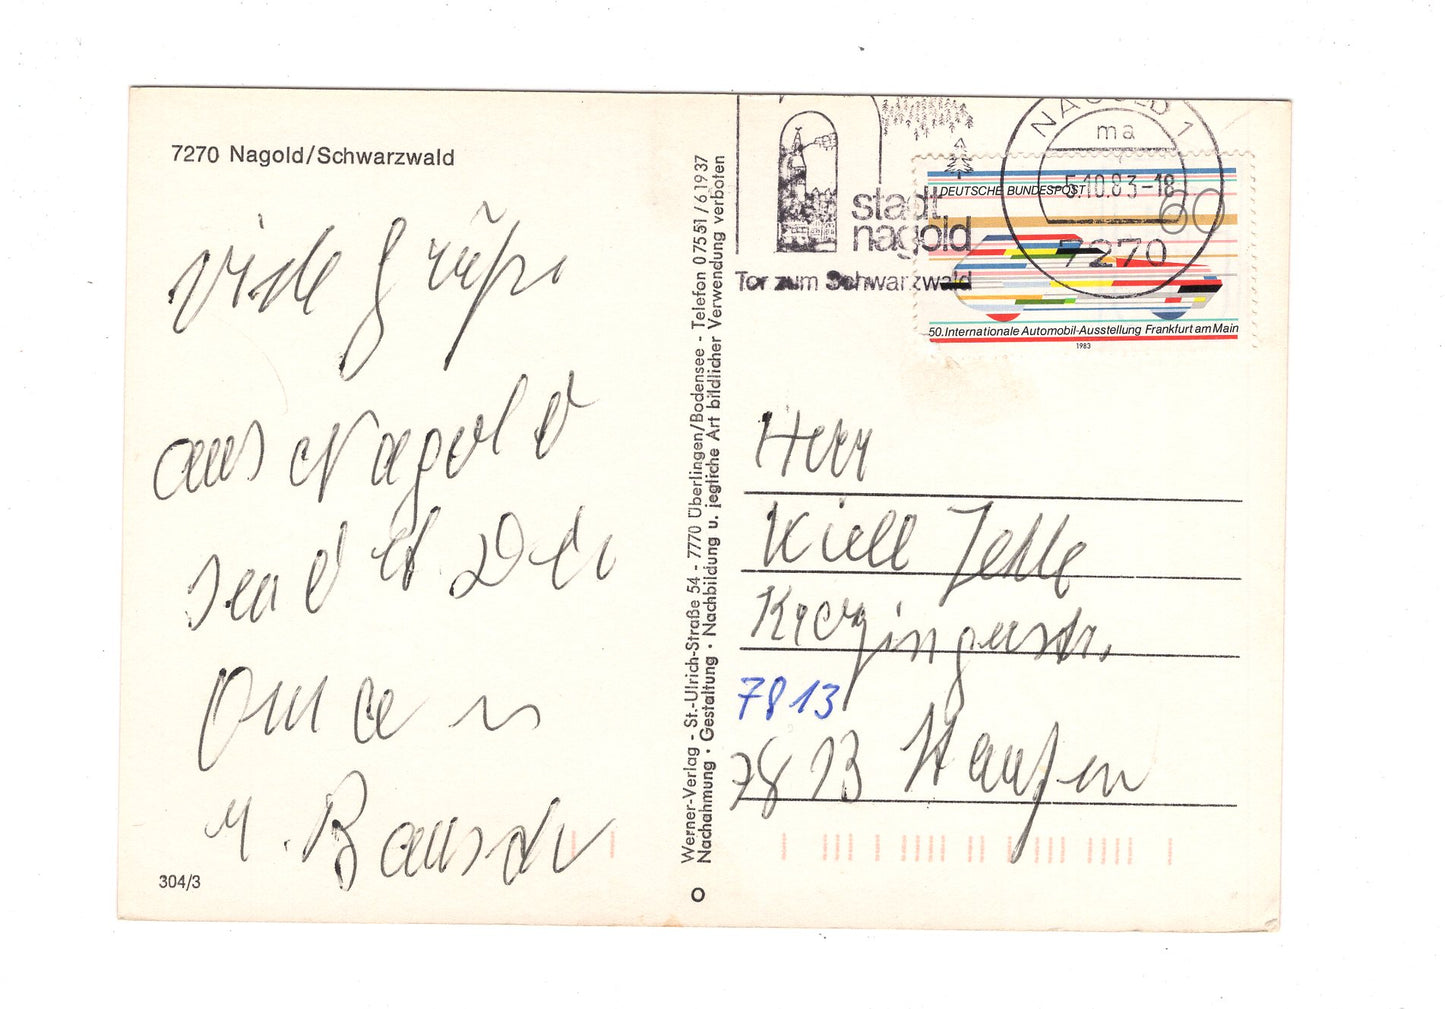 7270 Nagold/Schwarzwald
viele Grüße
aus Nagold
sendet Dir
M. Bausch
304/3
Werner-Verlag - St.-Ulrich-Straße 54 - 7770 Überlingen/Bodensee - Telefon 07551/61937
Nachahmung · Gestaltung · Nachbildung u. jegliche Art bildlicher Verwendung verboten
stadt
nagold
Tor zum Schwarzwald
NAGOLD 1
ma
5.10.83-18
7270
DEUTSCHE BUNDESPOST
60
50. Internationale Automobil-Ausstellung Frankfurt am Main
1983
Herr
Kiell
7813
7813 Hausen